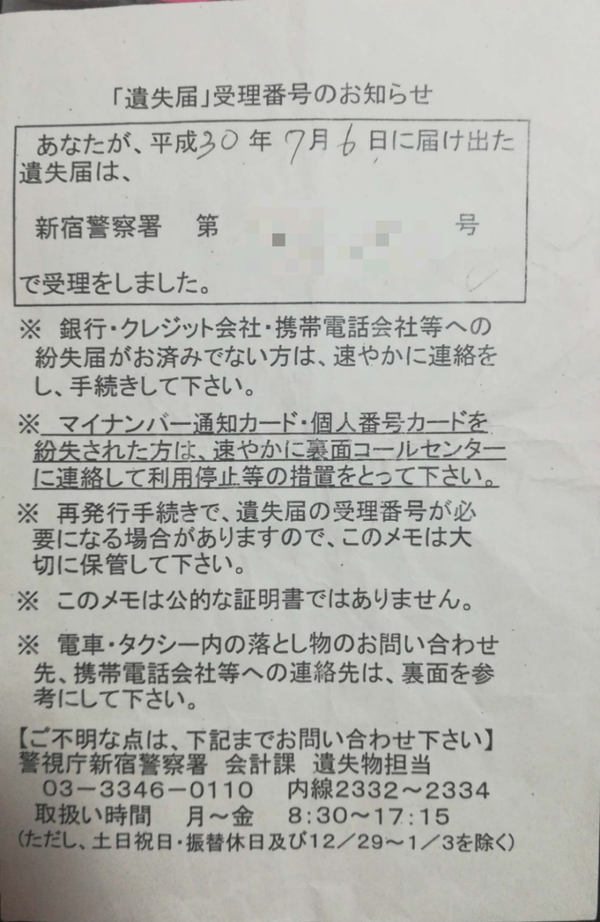 「遺失届」受理番号のお知らせ
あなたが、平成30年7月6日に届け出た
遺失届は、
新宿警察署 第 号
で受理をしました。
※ 銀行・クレジット会社・携帯電話会社等への
紛失届がお済みでない方は、速やかに連絡を
し、手続きして下さい。
※ マイナンバー通知カード・個人番号カードを
紛失された方は、速やかに裏面コールセンター
に連絡して利用停止等の措置をとって下さい。
※ 再発行手続きで、遺失届の受理番号が必
要になる場合がありますので、このメモは大
切に保管して下さい。
※ このメモは公的な証明書ではありません。
※ 電車・タクシー内の落とし物のお問い合わせ
先、携帯電話会社等への連絡先は、裏面を参
考にして下さい。
【ご不明な点は、下記までお問い合わせ下さい】
警視庁新宿警察署 会計課 遺失物担当
03-3346-0110 内線2332～2334
取扱い時間 月～金 8:30～17:15
(ただし、土日祝日・振替休日及び12/29～1/3を除く)